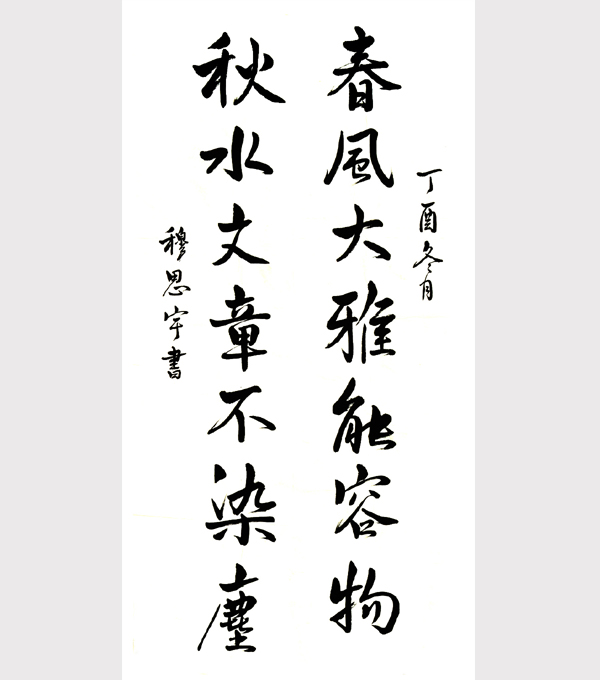 丁酉冬月
春風大雅能容物
秋水文章不染塵
穆思宇書